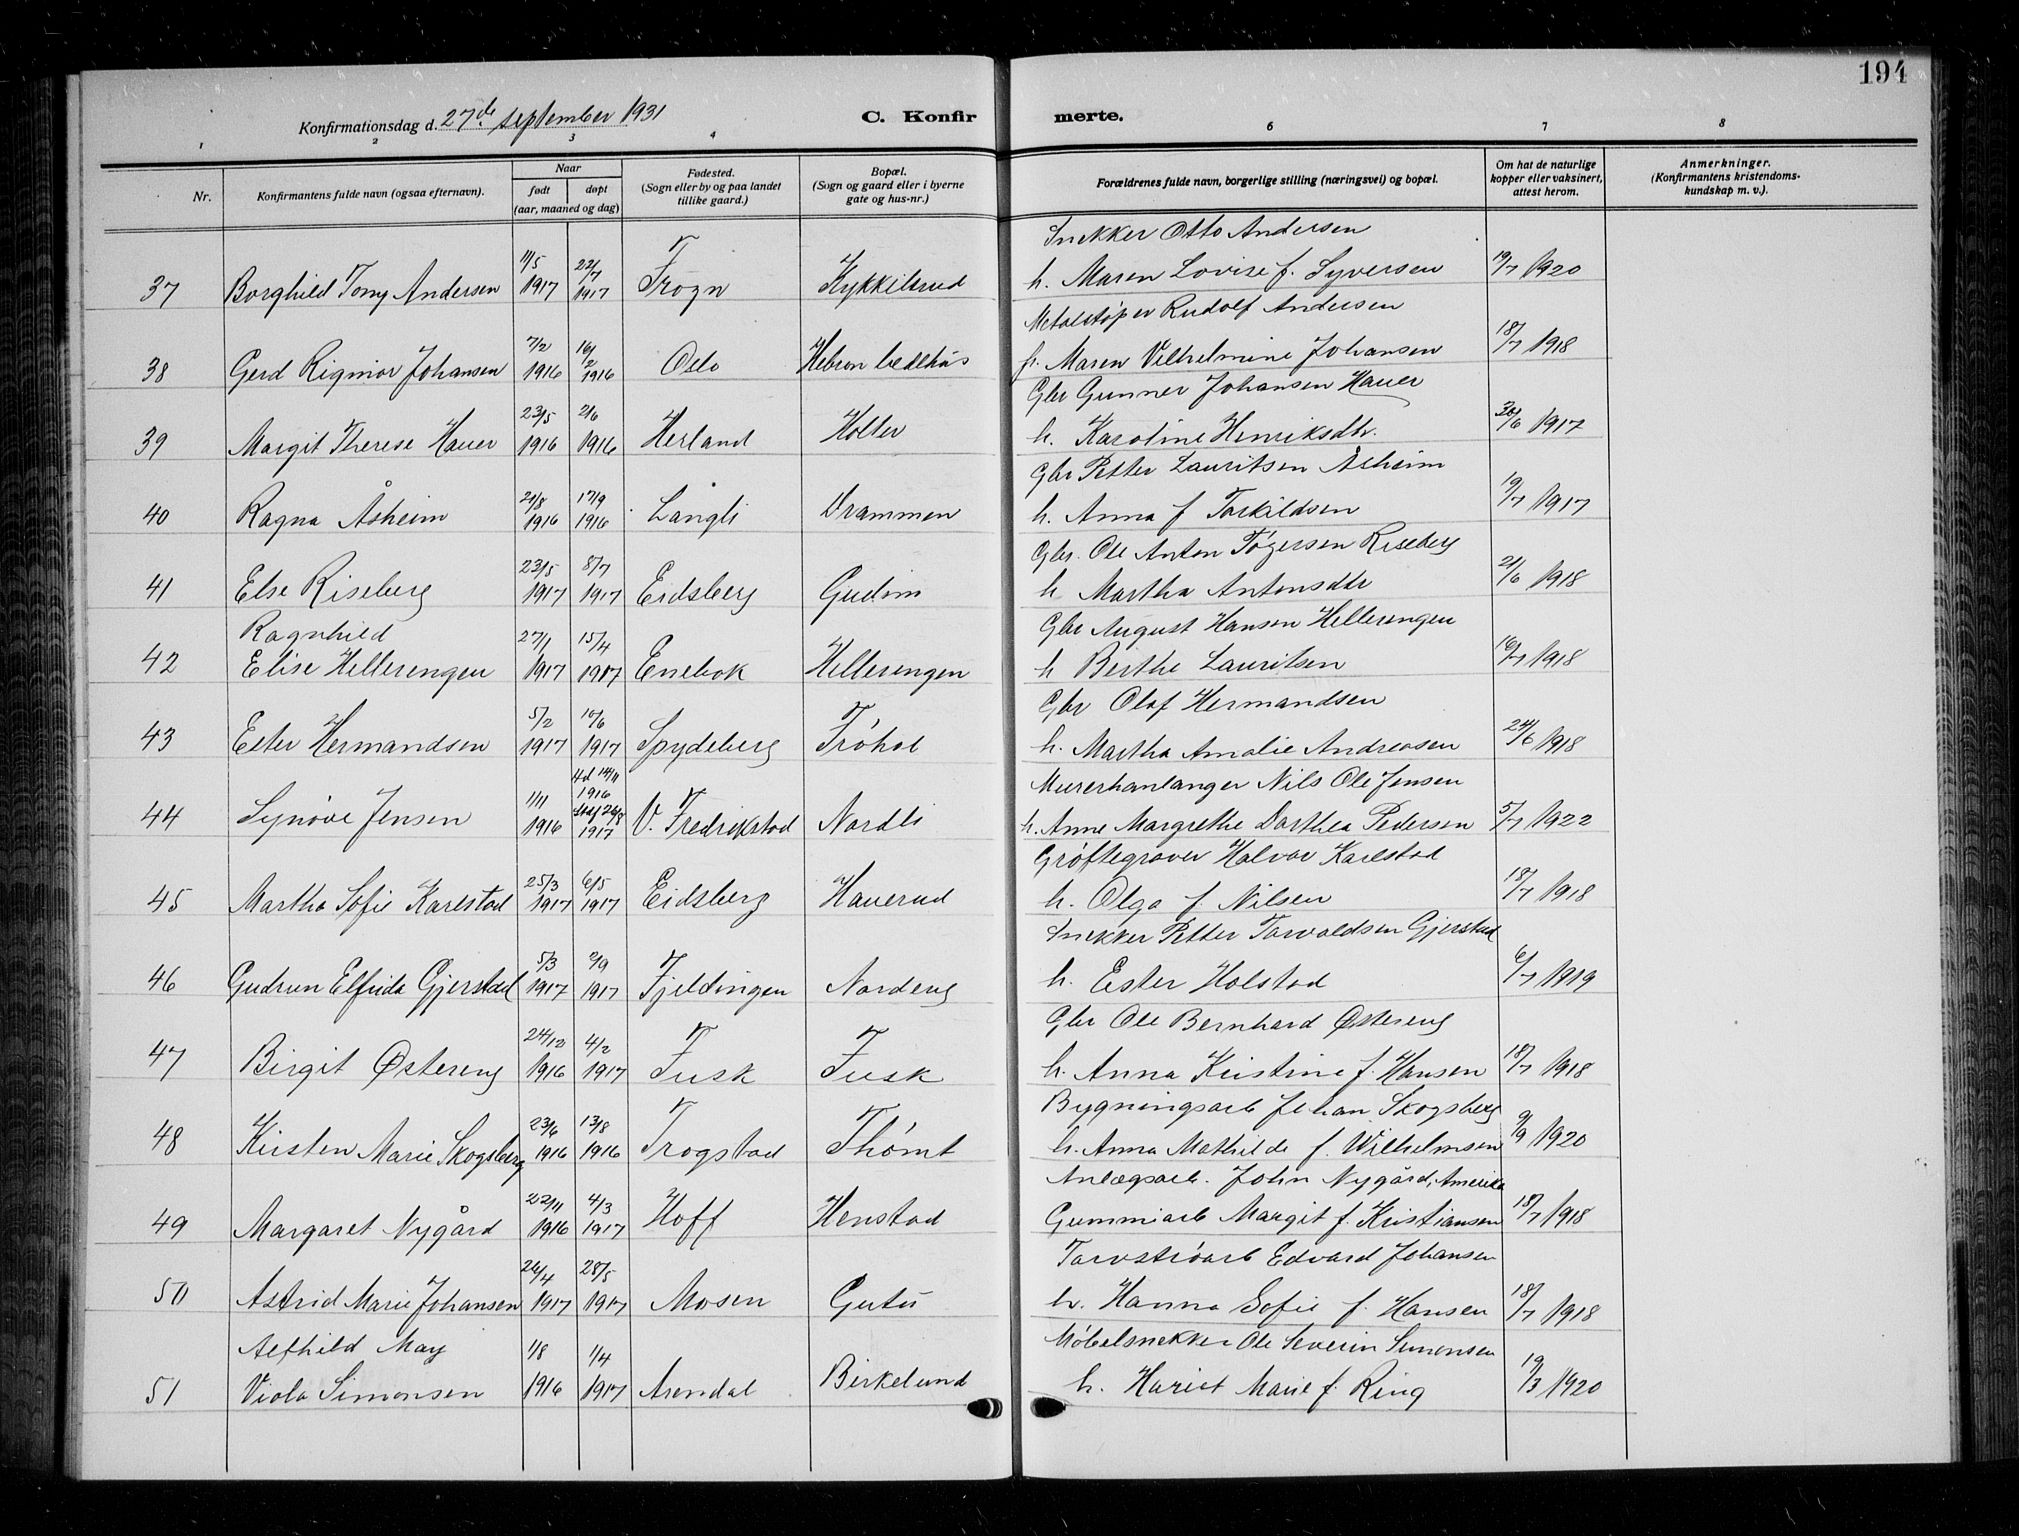 194
Konfirmationsdag d. 27de september 1931
C. Konfirmerte.
1 2 3 4 6 7 8
Nr.
Konfirmantens fulde navn (ogsaa efternavn).
Naar
født døpt
(aar, maaned og dag)
Fødested.
(Sogn eller by og paa landet
tillike gaard.)
Bopæl.
(Sogn og gaard eller i byerne
gate og hus-nr.)
Forældrenes fulde navn, borgerlige stilling (næringsvei) og bopæl.
Om hat de naturlige
kopper eller vaksinert,
attest herom.
Anmerkninger.
(Konfirmantens kristendoms-
kundskap m. v.).
Snekker Otto Andersen
11/5 22/7
37 Borghild Tony Andersen 1917 1917 Frogn Kykkelsrud h. Maren Lovise f. Syversen 19/7 1920
Metalstøper Rudolf Andersen
7/2 16/2
38 Gerd Rigmor Johansen 1916 1916 Oslo Hebron bedehus fr. Maren Vilhelmine Johansen 18/7 1918
Gbr Gunner Johansen Hauer
23/5 2/6
39 Margit Therese Hauer 1916 1916 Herland Holter h. Karoline Henriksdtr. 30/6 1917
Gbr Petter Lauritsen Åsheim
21/8 17/9
40 Ragna Åsheim 1916 1916 Langli Drammen h. Anna f Torkildsen 19/7 1917
Gbr. Ole Anton Tøgersen Riseberg
23/5 8/7
41 Else Riseberg 1917 1917 Eidsberg Gudim h Martha Antonsdtr 21/6 1918
Ragnhild 27/1 15/4 Gbr August Hansen Hellerengen
42 Elise Hellerengen 1917 1917 Enebok Hellerengen h Berthe Lauritsen 16/7 1918
Gbr Olaf Hermandsen
5/2 10/6
43 Ester Hermandsen 1917 1917 Spydeberg Frøhol h. Martha Amalie Andreasen 24/6 1918
4d 14/11 Murerhanlanger Nils Ole Jensen
1/11 1916
44 Synøve Jensen 1916 Stadf 26/8 1917 V. Fredrikstad Nordli h. Anne Margrethe Dorthea Pedersen 5/7 1922
Grøftegraver Halvor Karlstad
25/3 6/5
45 Martha Sofie Karlstad 1917 1917 Eidsberg Hauerud h. Olga f. Nilsen 18/7 1918
Snekker Petter Torvaldsen Gjerstad
5/3 2/9
46 Gudrun Elfrida Gjerstad 1917 1917 Fjeldingen Nordeng h. Ester Holstad 6/7 1919
Gbr Ole Bernhard Østereng
24/12 4/2
47 Birgit Østereng 1916 1917 Fusk Fusk h. Anna Kristine f. Hansen 18/7 1918
Bygningsarb Johan Skogsberg
23/6 13/8
48 Kirsten Marie Skogsberg 1916 1916 Trøgstad Thømt h. Anna Mathilde f. Wilhelmsen 9/9 1920
Anlægsarb. John Nygård, Amerika
22/11 4/3
49 Margaret Nygård 1916 1917 Hoff Henstad Gummiarb Margit f. Kristiansen 18/7 1918
Torvstrøarb Edvard Johansen
26/4 28/5
50 Astrid Marie Johansen 1917 1917 Mosen Gutu h. Hanna Sofie f. Hansen 18/7 1918
Alfhild May 1/8 1/4 Møbelsnekker Ole Severin Simonsen
51 Viola Simonsen 1916 1917 Arendal Birkelund h. Hariet Marie f. Ring 19/3 1920